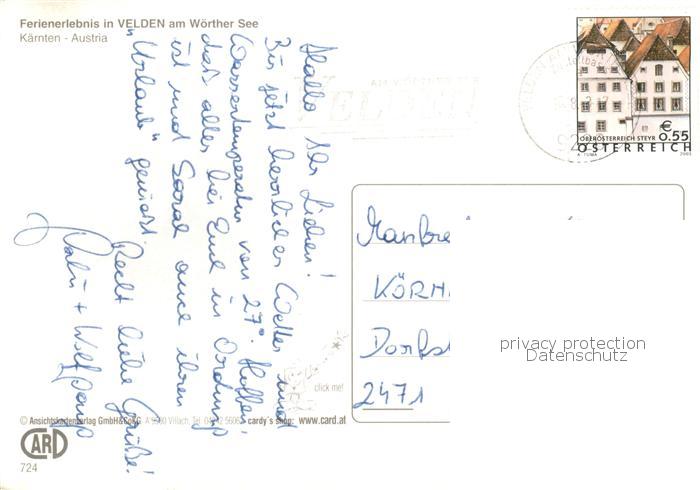 Ferienerlebnis in VELDEN am Wörther See
Kärnten - Austria
Hallo Ihr Lieben!
Bis jetzt herrliches Wetter und
Wassertemperatur von 27°. Hoffen,
daß alles bei Euch in Ordnung
ist und Sarah auch ihren
"Urlaub" genießt.
Recht liebe Grüße!
+ Wolfgang
AM WÖRTHER
VELDEN
OBERÖSTERREICH STEYR
€ 0.55
ÖSTERREICH
A. TUMA
2003
Manfre
KÖRN
Dorfst
2471
privacy protection
Datenschutz
click me!
© Ansichtskartenverlag GmbH&CoKG A 9500 Villach, Tel. cardy's shop: www.card.at
CARD
724